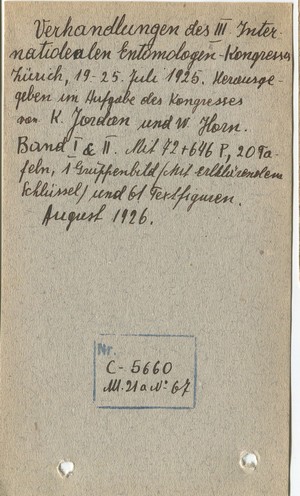 Verhandlungen des III Inter-
natidealen Entomologen-Kongresses
Zürich, 19-25. Juli 1925. Herausge-
geben im Aufgabe des Kongresses
von K. Jordan und W. Horn.
Band I & II. Mit 42+646 P, 20 Ta-
feln, 1 Gruppenbild (Mit erklärendem
Schlüssel) und 61 Textfiguren.
August 1926.
Nr.
C-5660
M. 21 a Nº 67